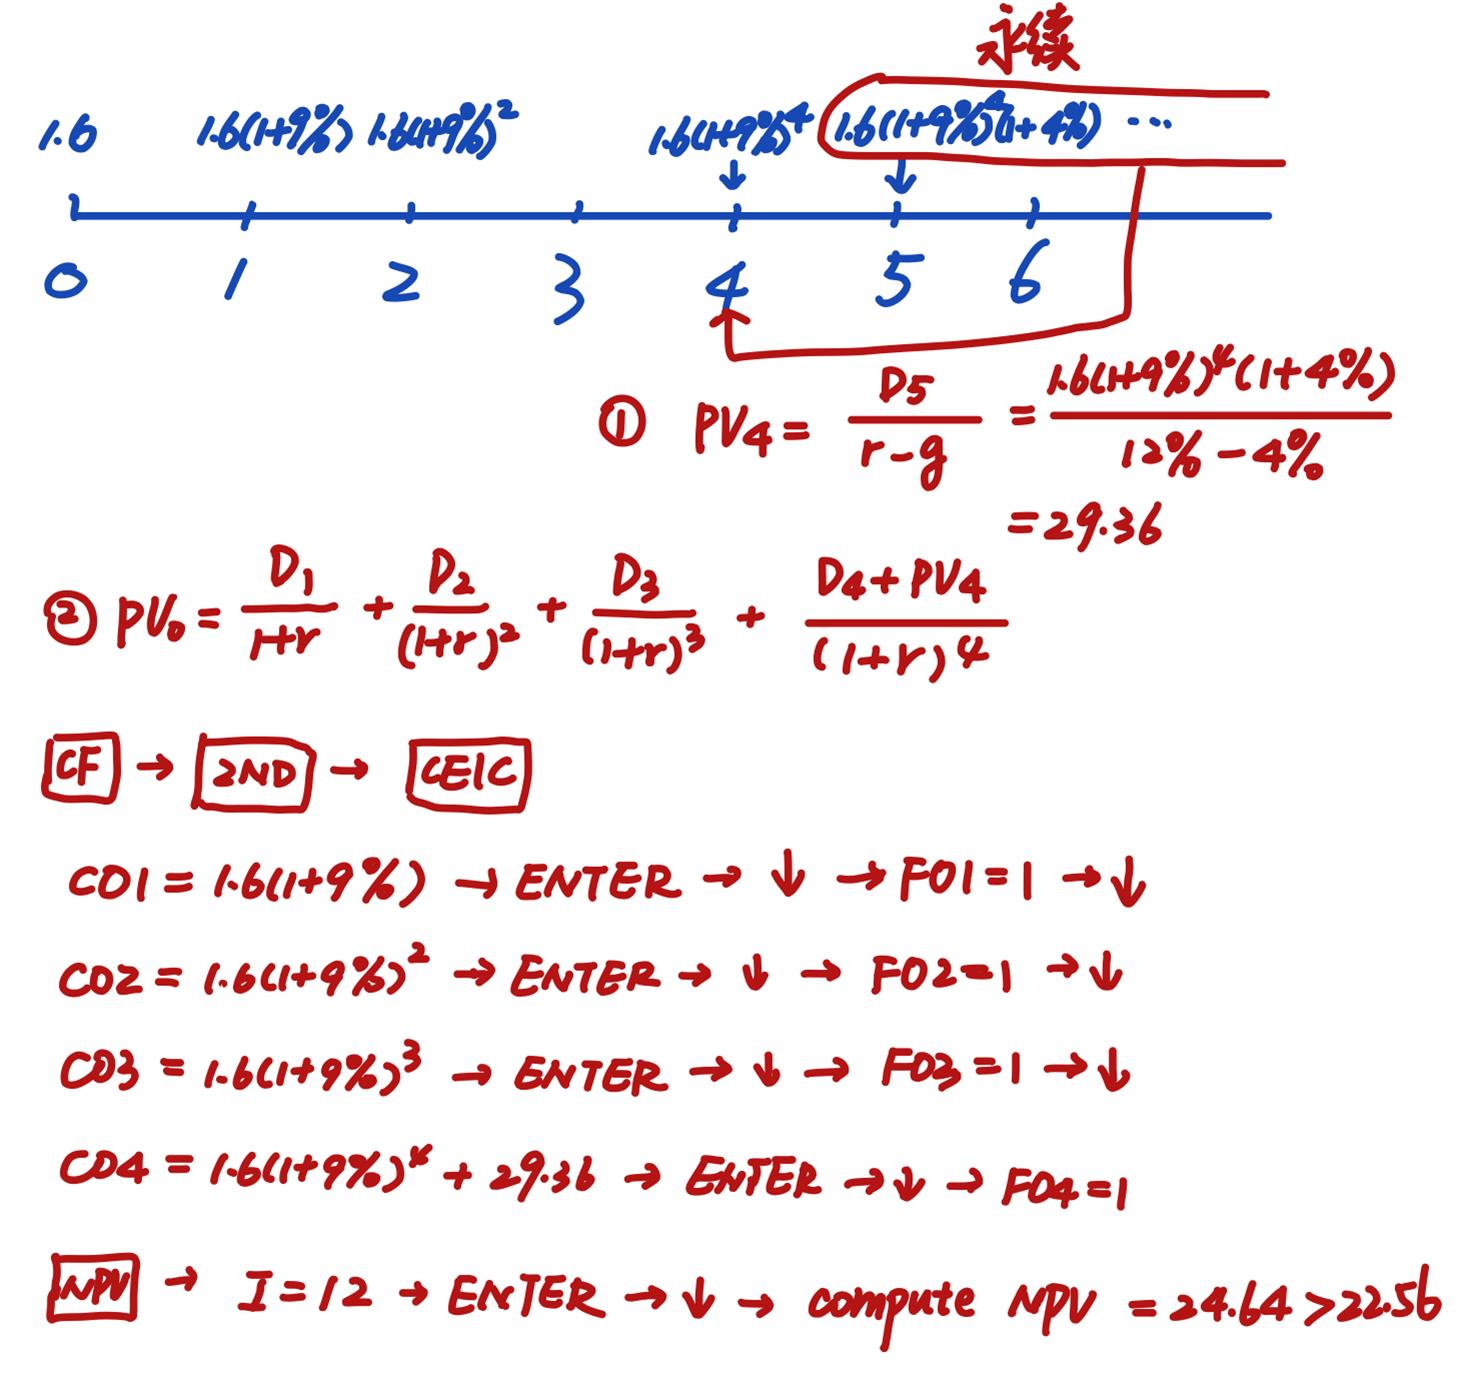 永续
1.6 1.6(1+9%) 1.6(1+9%)² 1.6(1+9%)⁴ 1.6(1+9%)⁴(1+4%) ...
0 1 2 3 4 5 6
① PV₄ = D₅ / (r-g) = 1.6(1+9%)⁴(1+4%) / (12% - 4%)
= 29.36
② PV₀ = D₁ / (1+r) + D₂ / (1+r)² + D₃ / (1+r)³ + (D₄ + PV₄) / (1+r)⁴
CF → 2ND → CE|C
C01 = 1.6(1+9%) → ENTER → ↓ → F01 = 1 → ↓
C02 = 1.6(1+9%)² → ENTER → ↓ → F02 = 1 → ↓
C03 = 1.6(1+9%)³ → ENTER → ↓ → F03 = 1 → ↓
C04 = 1.6(1+9%)⁴ + 29.36 → ENTER → ↓ → F04 = 1
NPV → I = 12 → ENTER → ↓ → compute NPV = 24.64 > 22.56